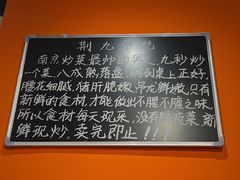 荆九
南京炒菜最帅的男人，九秒炒
一个菜，八成熟落盘，端到桌上正好，
腰花细腻，猪肝肥嫩，吊龙鲜嫩，只有
新鲜的食材，才能做出不腥不膻之味，
所以食材每天现采，没有隔夜菜，新
鲜现炒，卖完即止！！！